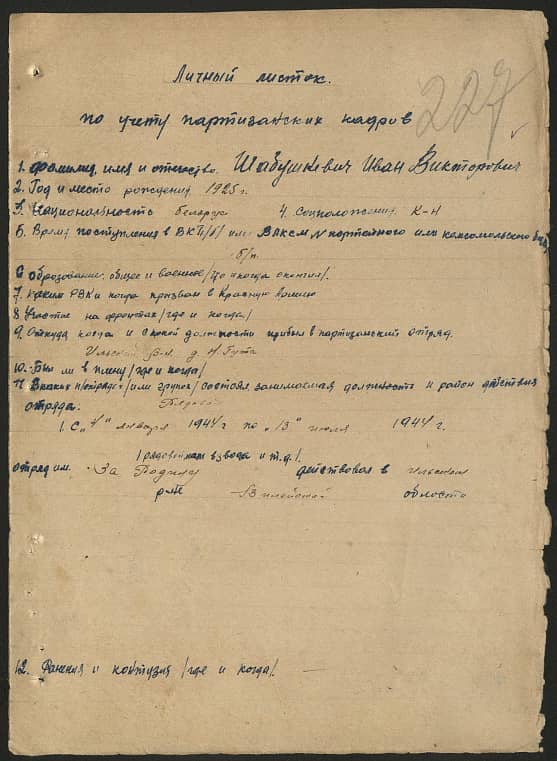 Личный листок.
227
по учету партизанских кадров
1. Фамилия, имя и отчество. Шабушкевич Иван Викторович
2. Год и место рождения 1925 г.
3. Национальность беларус 4. Соцположения К-Н
5. Время поступления в ВКП/б/ или ВЛКСМ № портатного или комсомольского
б/п.
6 оброзование, общее и военное/что и когда окончил/.
7. каким РВК и когда призван в Красную Армию
8 Участие на фронтах/где и когда/
9. Откуда когда и с какой должности прибыл в партизанский отряд.
д. Н. Гута
10. Был ли в плену/где и когда/
11. В каких п/отрядах/или групах/ состоял, занимаемая должность и район действия
отряда. Рядовой
1. С „4" января 1944 г по „13" июля 1944 г.
/рядовой ком взвода и т.д./.
отряд им. За Родину действовал в Ильском
р-не Вилейской области
12. Ранения и контузия /где и когда/. —